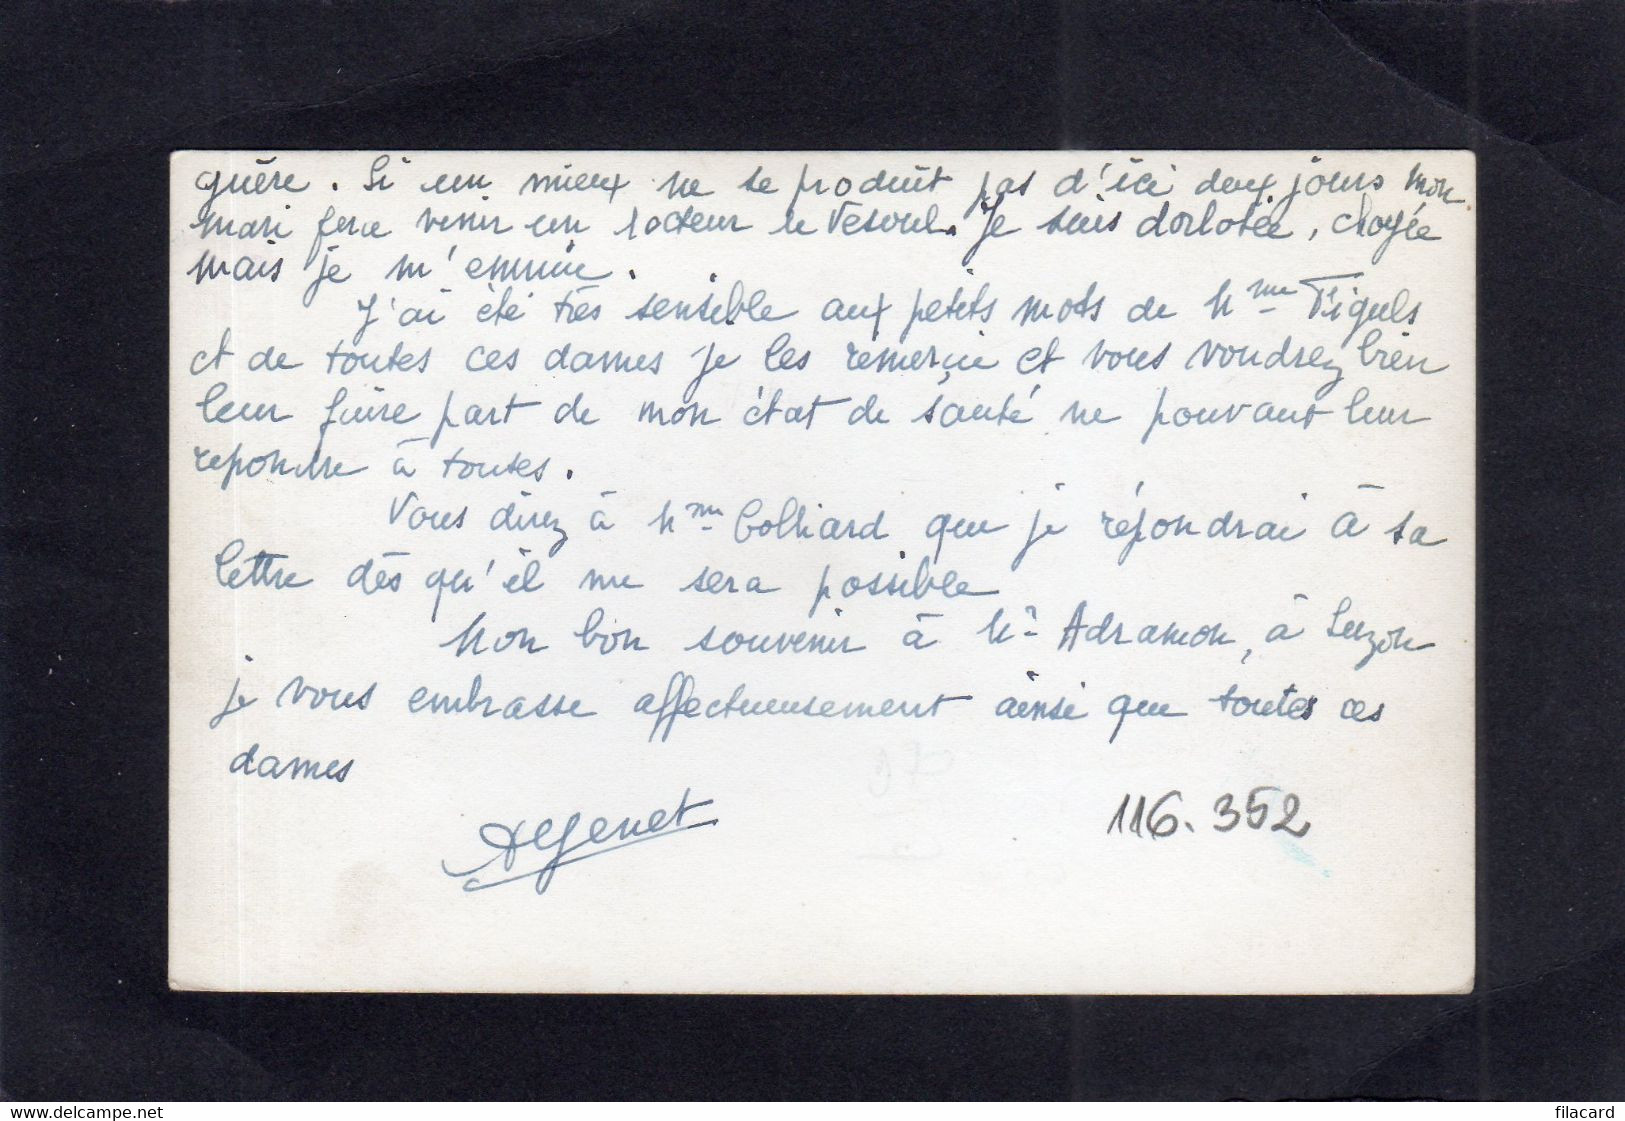 guère. Si un mieux ne se produit pas d'ici deux jours mon
mari fera venir un docteur de Vesoul. Je suis dorlotée, choyée
mais je m'ennuie.
J'ai été très sensible aux petits mots de Mme
et de toutes ces dames je les remercie et vous voudrez bien
leur faire part de mon état de santé ne pouvant leur
repondre à toutes.
Vous direz à Mme Colliard que je répondrai à sa
lettre dès qu'il me sera possible
Mon bon souvenir à Mr Adramon, à Suzon
je vous embrasse affectueusement ainsi que toutes ces
dames
Genet
116.352
www.delcampe.net
filacard